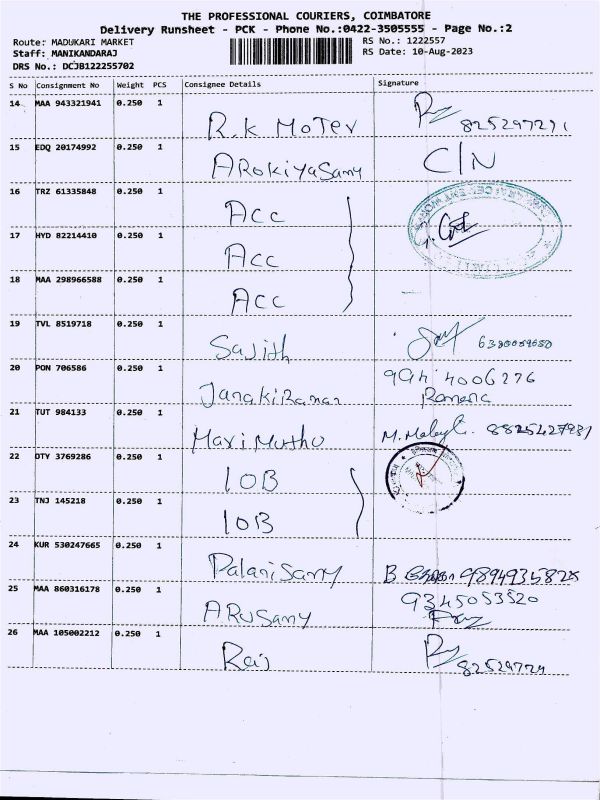 THE PROFESSIONAL COURIERS, COIMBATORE
Delivery Runsheet - PCK - Phone No.:0422-3505555 - Page No.:2
Route: MADUKARI MARKET
RS No.: 1222557
Staff: MANIKANDARAJ
RS Date: 10-Aug-2023
DRS No.: DCJB122255702
S No Consignment No Weight PCS Consignee Details Signature
14 MAA 943321941 0.250 1 R.K Motev 825297271
15 EDQ 20174992 0.250 1 ARokiyaSamy C/N
16 TRZ 61335848 0.250 1 Acc
17 HYD 82214410 0.250 1 Acc
18 MAA 298966588 0.250 1 Acc
19 TVL 8519718 0.250 1 Sajith
20 PON 706586 0.250 1 JanakiRaman 994 4006276
Ramana
21 TUT 984133 0.250 1 MariMuthu M. 8825427931
22 OTY 3769286 0.250 1 IOB
23 TNJ 145218 0.250 1 IOB
24 KUR 530247665 0.250 1 PalaniSamy B
25 MAA 860316178 0.250 1 ARuSamy 9345053520
26 MAA 105002212 0.250 1 Raj